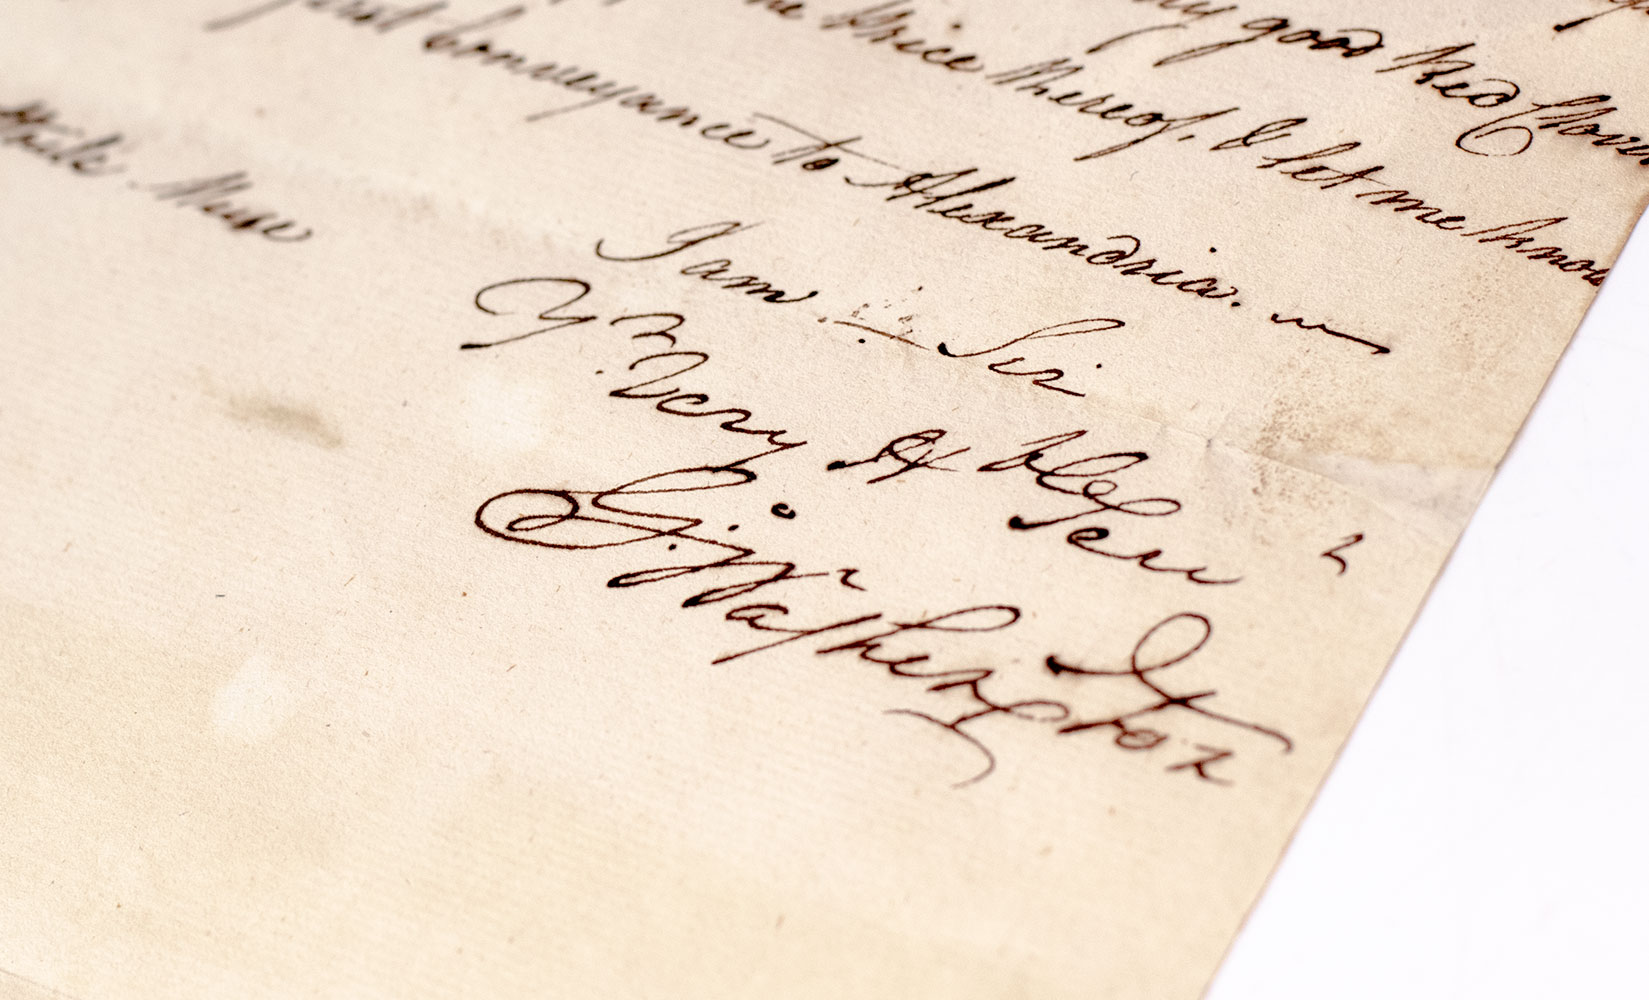 ny good Red Clover
the Price thereof, & let me know
first Conveyance to Alexandria. ~
I am Sir
Yr. Very Hble Servt
Go: Washington
Muse